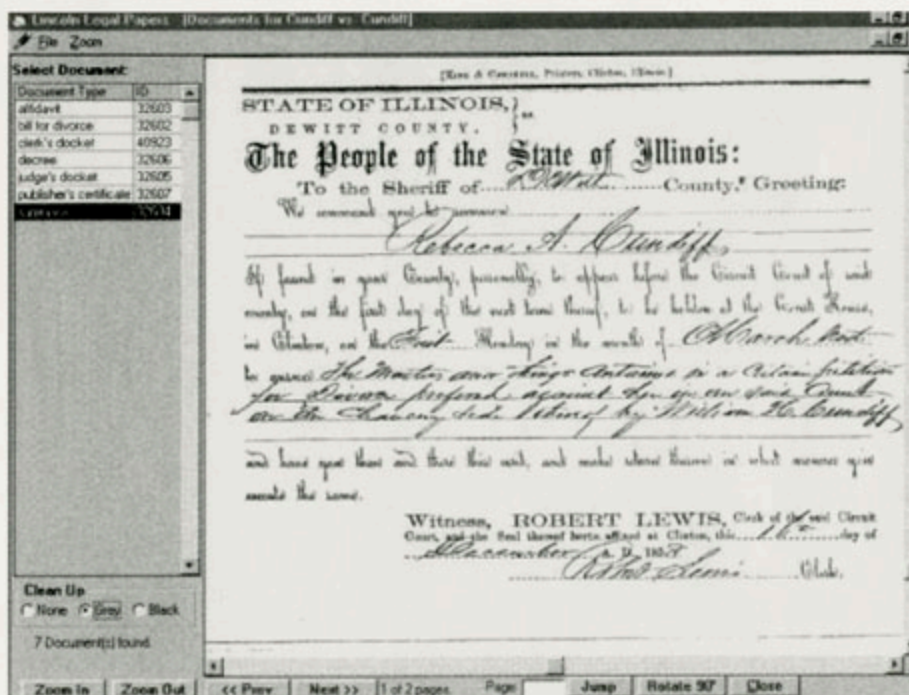 Lincoln Legal Papers [Documents for Cundiff vs. Cundiff]
File Zoom
Select Document:
Document Type ID
affidavit 32603
bill for divorce 32602
clerk's docket 40923
decree 32606
judge's docket 32605
publisher's certificate 32607
32604
Clean Up
None Grey Black
7 Document(s) found.
Zoom In Zoom Out << Prev Next >> 1 of 2 pages. Page Jump Rotate 90° Close
STATE OF ILLINOIS, } ss.
DEWITT COUNTY.
The People of the State of Illinois:
To the Sheriff of DeWitt County, Greeting:
We command you to summon
Rebecca A. Cundiff
If found in your County, personally, to appear before the Circuit Court of said
county, on the first day of the next term thereof, to be holden at the Court House,
in Clinton, on the First Monday in the month of March next
to answer in a certain petition
for Divorce against her in our said Court
on the Chancery side thereof by William H. Cundiff
and have you then and there this writ, and make return thereon in what manner you
execute the same.
Witness, ROBERT LEWIS, Clerk of the said Circuit
Court, and the Seal thereof hereto affixed at Clinton, this day of
December A. D. 185
Robert Lewis Clerk.